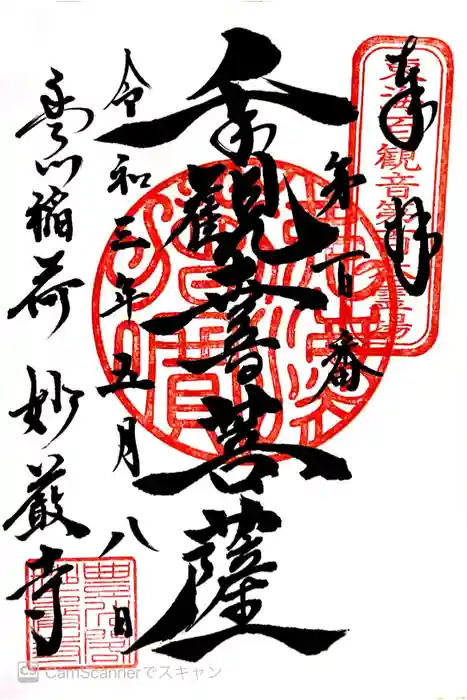 奉拝
東海百観音第
霊場
第百番
千手觀音菩薩
令和三年五月八日
豊川稲荷 妙厳寺
CS CamScannerでスキャン